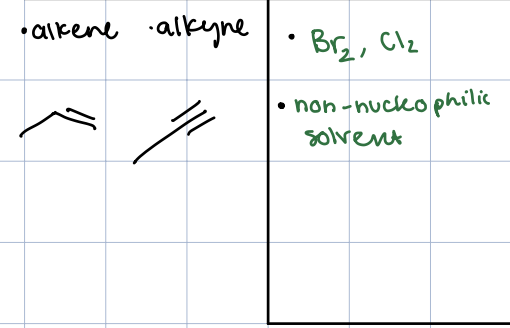 • alkene • alkyne
• Br₂, Cl₂
• non-nucleophilic
solvent